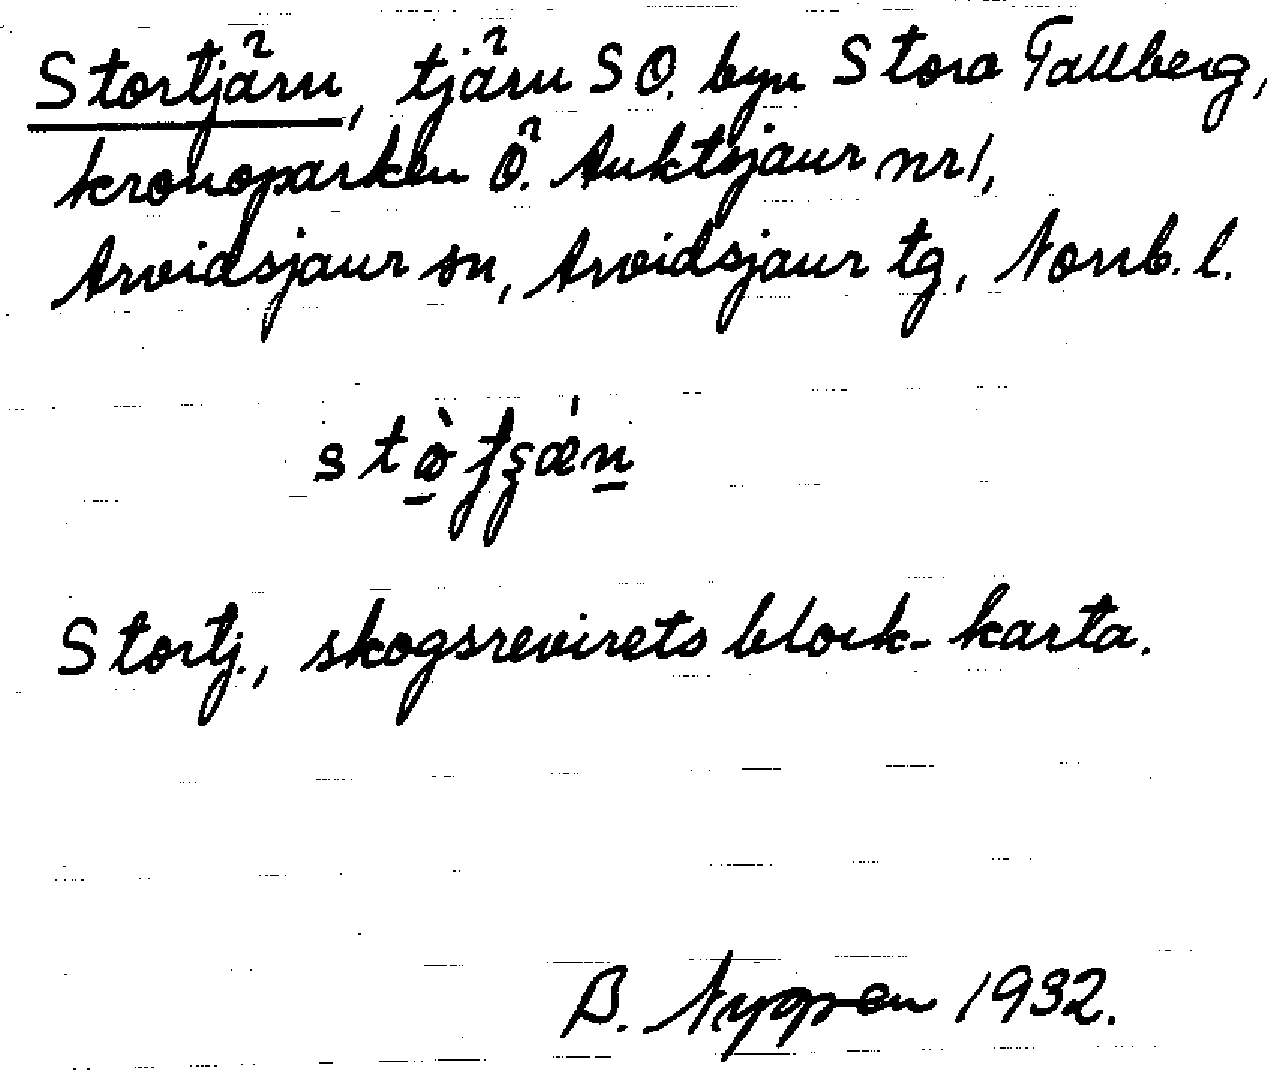 Stortjärn, tjärn SO. byn Stora Tallberg,
kronoparken Ö. Auktsjaur nr 1,
Arvidsjaur sn, Arvidsjaur tg, Norrb. l.
Stortj., skogsrevirets block-karta.
B. Nygren 1932.